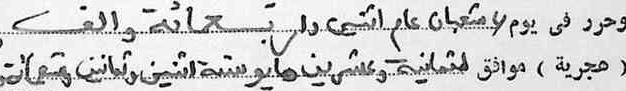 وحرر فى يوم شعبان عام اثنى واربعمائة والف
( هجرية ) موافق لثمانية وعشرين مايو سنة اثنين وثمانين وتسعمائة